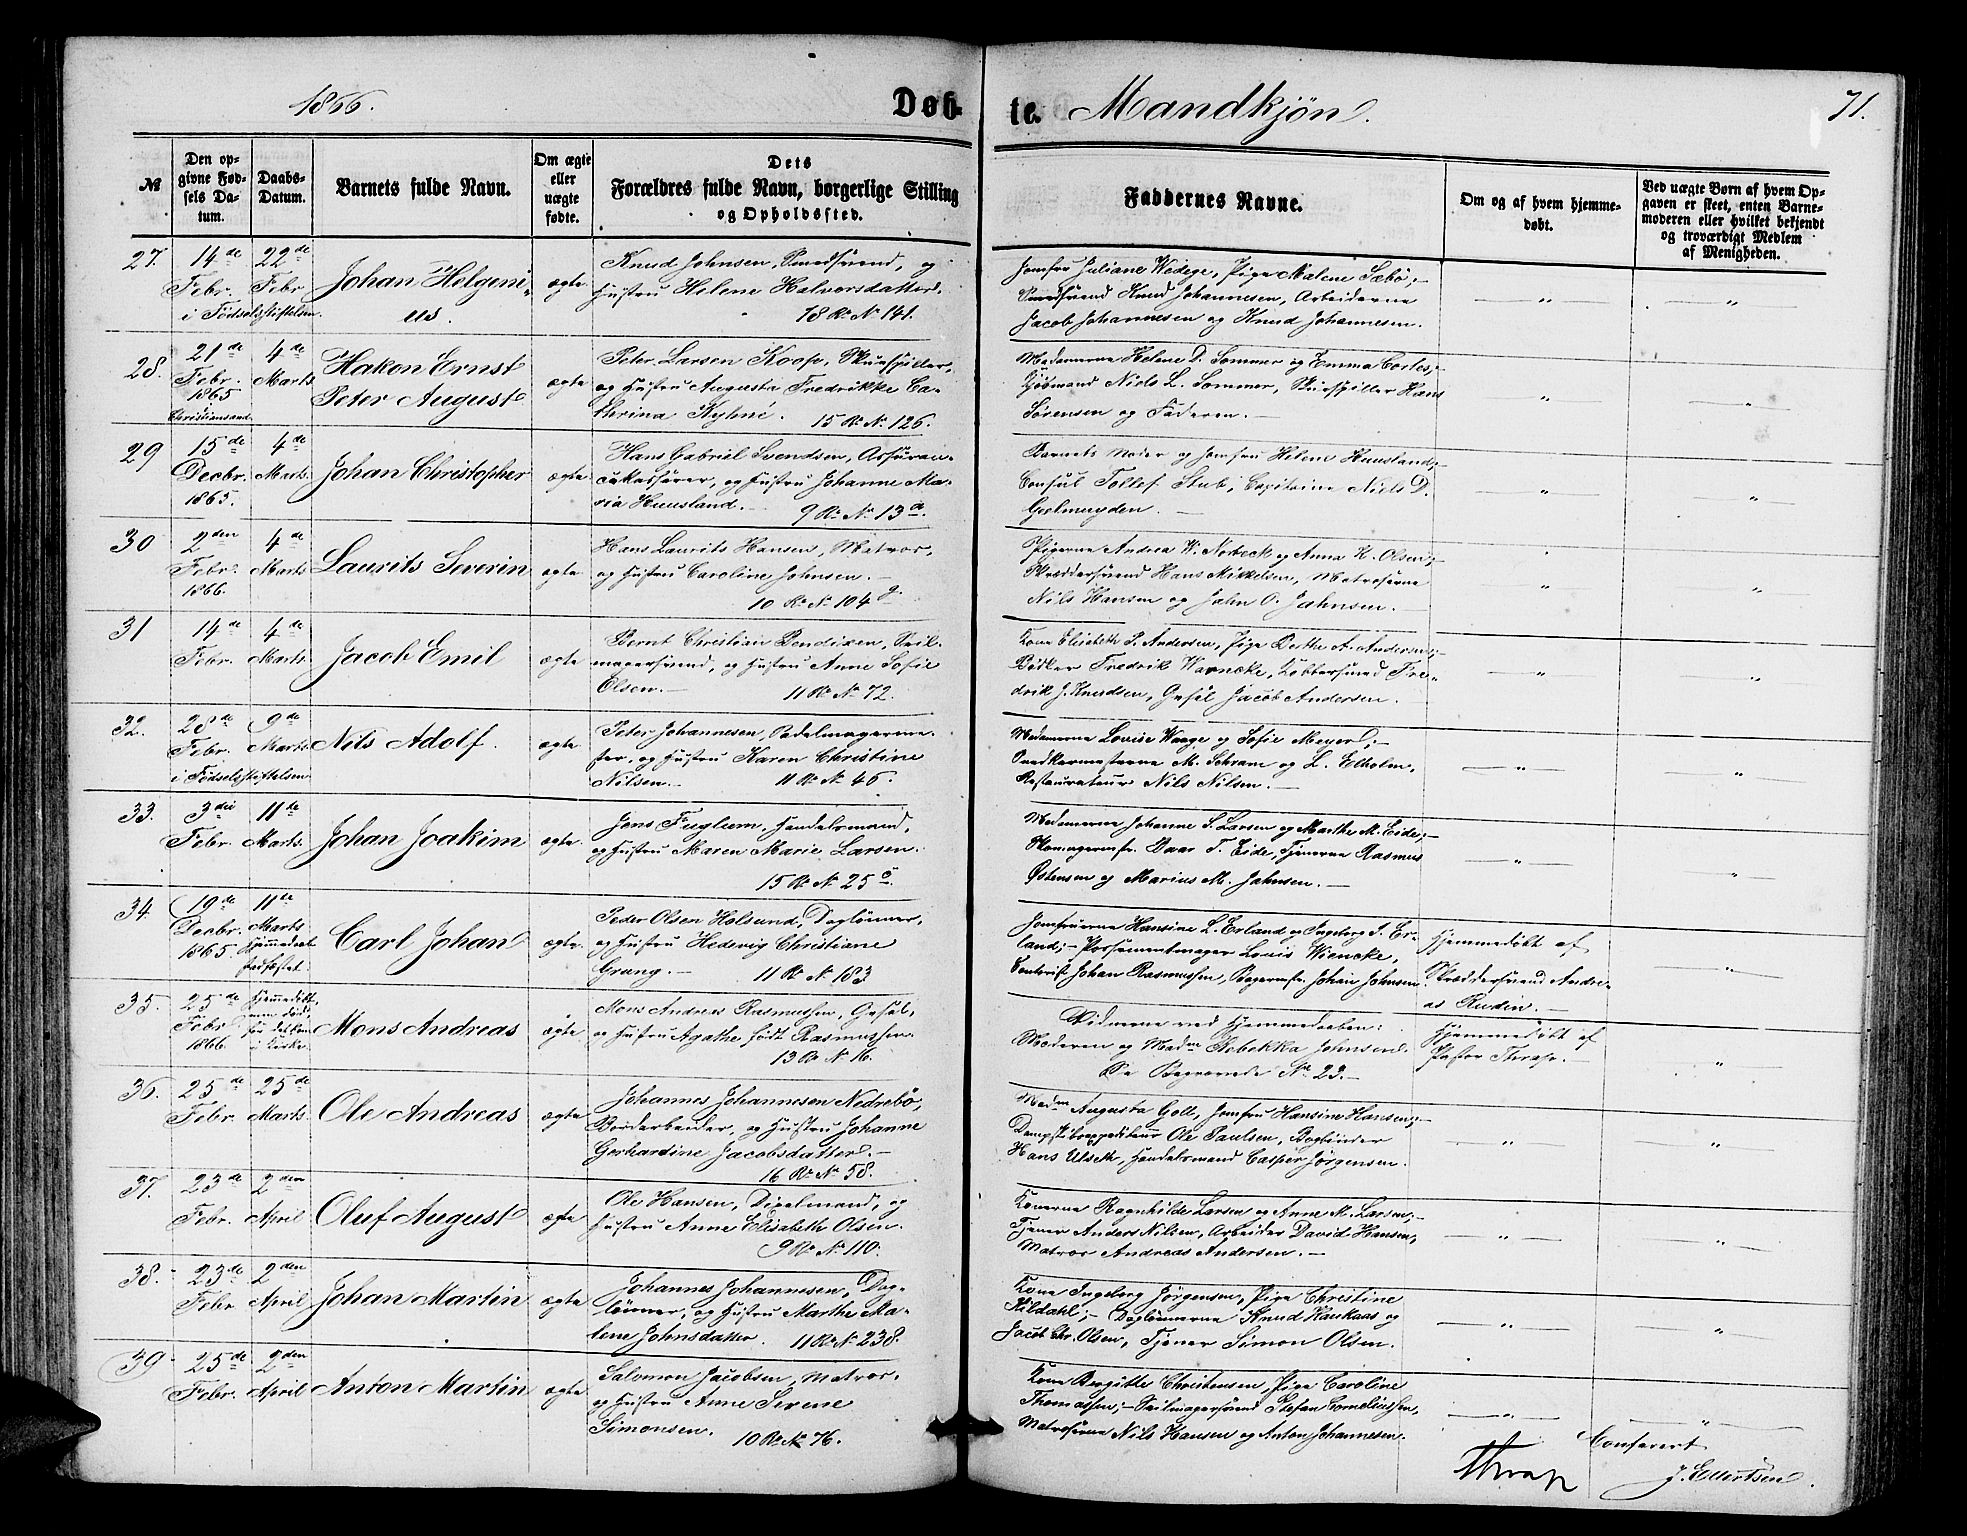 1866.
Døb-
te. Mandkjøn.
71.
№
Den op-
givne Fød-
sels Da-
tum.
Daabs-
Datum.
Barnets fulde Navn.
Om ægte
eller
uægte
fødte.
Dets
Forældres fulde Navn, borgerlige Stilling
og Opholdssted.
Faddernes Navne.
Om og af hvem hjemme-
døbt.
Ved uægte Børn af hvem Op-
gaven er skeet, enten Barne-
moderen eller hvilket bekjendt
og troværdigt Medlem
af Menigheden.
27.
14de
Febr.
i Fødselsstiftelsen.
22de
Febr
Johan Helgeni-
us.
ægte
Knud Johnsen, Smedsvend, og
Hustru Helene Halvorsdatter.
18 R. N. 141.
Jomfru Juliane Wedege, Pige Malene Sæbø;-
Smedsvend Knud Johannesen, Arbeiderne
Jacob Johannesen og Knud Johannesen.
28.
21de
Febr.
1865
Christiansand
4de
Marts
Hakon Ernst
Peter August
ægte
Peter Larsen Koop, Skuespiller,
og Hustru Augusta Fredrikke Ca-
thrina Kyhné. 15 R. N. 126.
Madamerne Helene D. Sommer og Emma Cortes;-
Niels L. Sommer, Skuespiller Hans
Sørensen og Faderen.-
29
15de
Decbr.
1865.
4de
Marts
Johan Christopher
ægte
Hans Gabriel Svendsen, Assuran-
cekasserer, og Hustru Johanne Ma-
ria Huusland. 9 R. N. 13a.
Barnets Moder og Jomfru Helene Huusland;-
Consul Tollef Stub, Capitaine Niels D.
Gjelmuyden.-
30
2den
Febr.
1866.
4de
Marts
Laurits Severin
ægte
Hans Laurits Hansen, Matros,
og Hustru Caroline Johnsen.-
10 R. N. 104 g.
Pigerne Andrea W. Norbeck og Anna K. Olsen;-
Skreddersvend Hans Mikkelsen, Matroserne
Nils Hansen og John O. Johnsen.-
31
14de
Febr.
4de
Marts.
Jacob Emil
ægte
Bernt Christian Bendixen, Seil-
magersvend, og Hustru Anne Sofie
Olsen.- 11 R. N. 72.
Kone Elisabeth P. Andersen, Pige Berthe A. Andersen;-
Bødker Fredrik Warncke, Kobbersmed Fre-
drik J. Knudsen, Gesel Jacob Andersen.
32.
28de
Febr.
i Fødselsstiftelsen
9de
Marts.
Nils Adolf.
ægte
Peter Johannesen, Sadelmagerme-
ster, og Hustru Karen Christine
Nilsen.- 11 R. N. 46.
Madamerne Lovise Waage og Sofie Meyer;-
Snedkermesterne M. Schram og L. Elholm,
Restaurateur Nils Nilsen.-
33.
3die
Febr.
11te
Marts.
Johan Joakim
ægte
Jens Fuglum, Handelsmand,
og Hustru Maren Marie Larsen.
15 R. N. 25 c.
Madamerne Johanne S. Larsen og Marthe M. Eide;-
Skomagermstr. Daar T. Eide, Tjenerne Rasmus
Østensen og Marius M. Johnsen.-
34
19de
Decbr.
1865.
11te
Marts
Hjemmedaab
stadfæstet.
Carl Johan
ægte.
Peder Olsen Holsund, Daglønner,
og Hustru Hedevig Christiane
Grung.- 11 R. N. 183
Jomfruerne Hansine L. Erland og Ingeborg S. Er-
land;- Possementmager Louis Wiencke,
Contorist Johan Rasmussen, Bagermstr. Johan Johnsen
Hjemmedøbt af
Skræddersvend Andre-
as Rudin.-
35.
25de
Febr
1866.
Hjemmedøbt,
men død
før Daaben
i Kirke.
Mons Andreas
ægte
Mons Andreas Rasmussen, Gesel,
og Hustru Agathe født Rasmussen.
13 R. N. 16.
Vidnerne ved Hjemmedaaben:
Moderen og Madm Rebekka Johnsen.
Se Begravede No. 23.-
Hjemmedøbt af
Pastor Thrap.-
36.
25de
Febr.
25de
Marts.
Ole Andreas
ægte
Johannes Johannesen Nedrebø,
Bordarbeider, og Hustru Johanne
Gerhardine Jacobsdatter.-
16 R. N. 58.
Madm Augusta Goll, Jomfru Hansine Hansen;-
Dampskibsexpediteur Ole Paulsen, Bogbinder
Hans Ulseth, Handelsmand Casper Jørgensen.
37.
23de
Febr.
2den
April
Oluf August
ægte
Ole Hansen, Dixelmand, og
Hustru Anne Elisabeth Olsen.
9 R. N. 110.
Konerne Ragnhilde Larsen og Anne M. Larsen;-
Tjener Anders Nilsen, Arbeider David Hansen,
Matros Andreas Andersen.-
38.
23de
Febr
2den
April
Johan Martin
ægte
Johannes Johannesen, Dag-
lønner, og Hustru Marthe Ma-
lene Johnsdatter. 11 R. N. 238.
Kone Ingeborg Jørgensen, Pige Christine
Kildahl;- Daglønnerne Knud Haukaas og
Jacob Chr. Olsen, Tjener Simon Olsen.
39
25de
Febr.
2den
April
Anton Martin
ægte
Salomon Jacobsen, Matros,
og Hustru Anne Serene
Simonsen. 10 R. N. 76.
Kone Bergitte Christensen, Pige Caroline
Thomassen;- Seilmagersvend Stefan Corneliussen,
Matroserne Nils Hansen og Anton Johannesen.
Thrap
Confereret
J. Ellertsen.